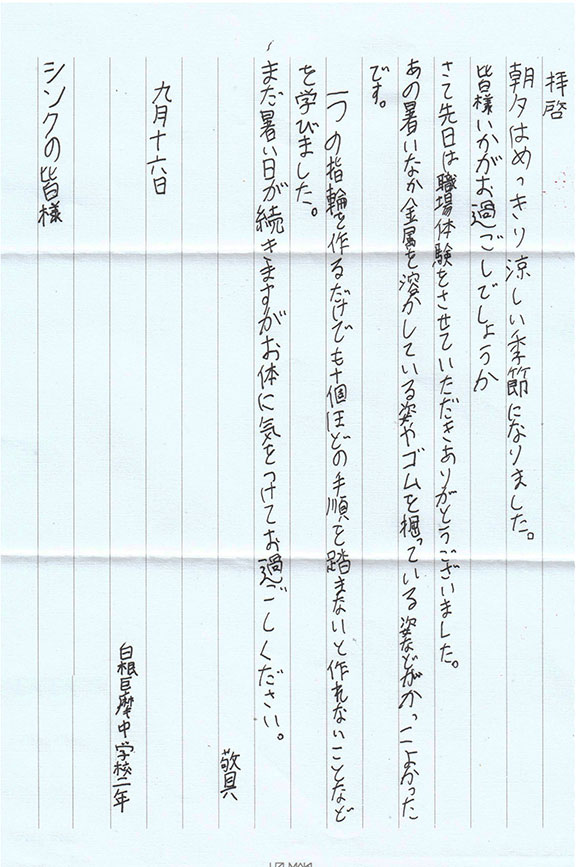 拝啓
朝夕はめっきり涼しい季節になりました。
皆様いかがお過ごしでしょうか
さて先日は職場体験をさせていただきありがとうございました。
あの暑いなか金属を溶かしている姿やゴムを掘っている姿などがかっこよかった
です。
一つの指輪を作るだけでも十個ほどの手順を踏まないと作れないことなど
を学びました。
まだ暑い日が続きますがお体に気をつけてお過ごしください。
敬具
九月十六日
白根巨摩中学校二年
シンクの皆様